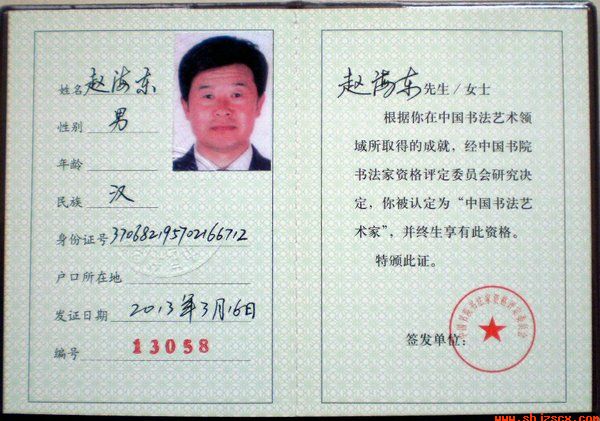 姓名 赵海东
性别 男
年龄
民族 汉
身份证号 370682195702166712
户口所在地
发证日期 2013年3月16日
编号 13058
赵海东 先生/女士
根据你在中国书法艺术领
域所取得的成就，经中国书院
书法家资格评定委员会研究决
定，你被认定为“中国书法艺
术家”，并终生享有此资格。
特颁此证。
签发单位：
中国书院书法家资格评定委员会
www.shjzscx.com